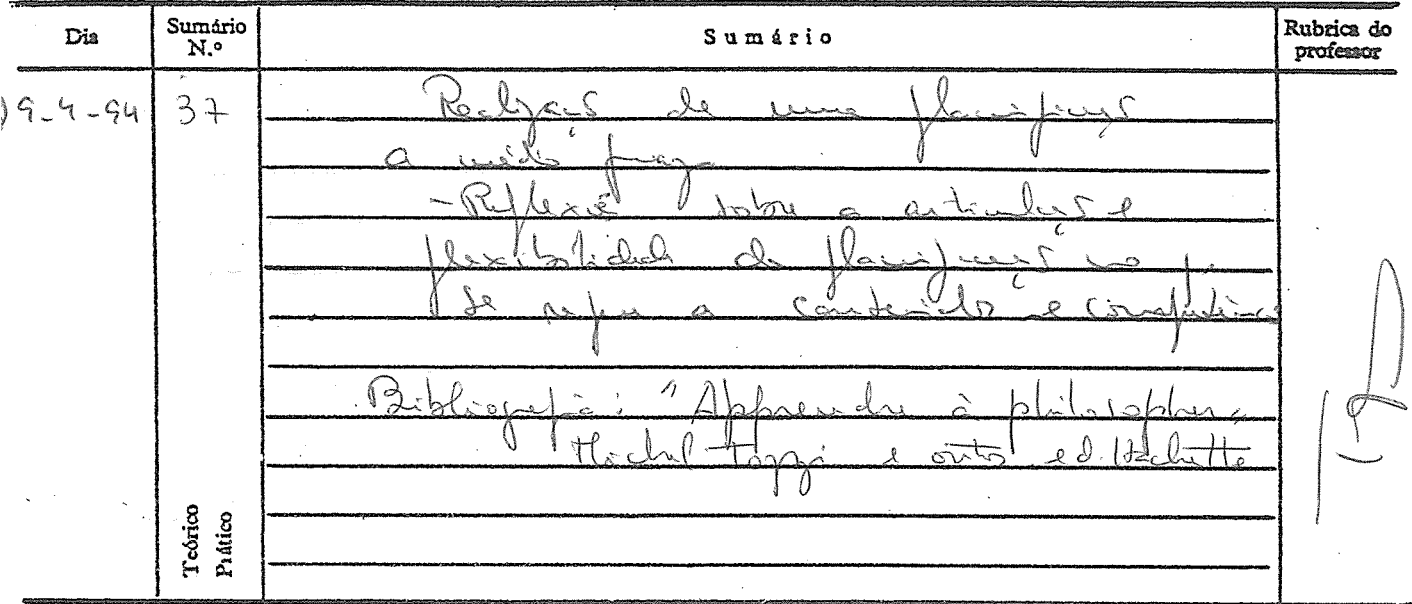 Dia Sumário N.º Sumário Rubrica do professor
19-4-94 37 Realização de uma planificação
a médio prazo
- Reflexão sobre a articulação e
flexibilidade da planificação no q.
se refere a conteúdos e competências
Bibliografia: "Apprendre à philosopher,
Michel Tozzi e outros ed. Hachette
Teórico
Prático